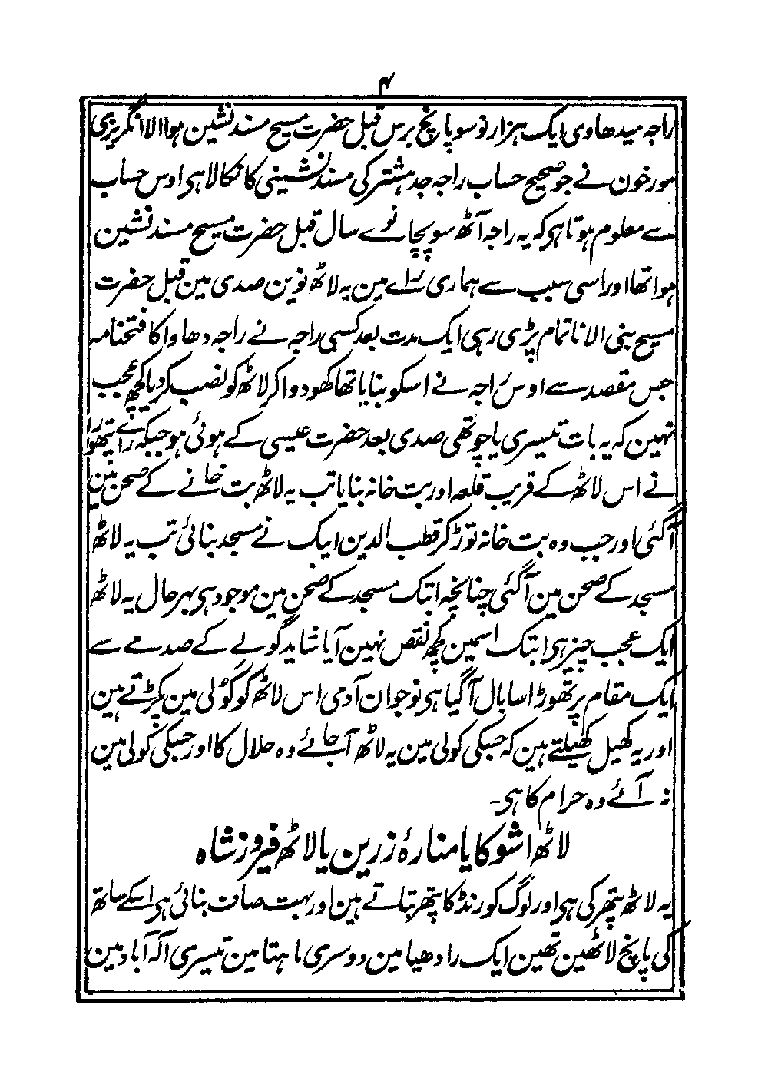 ۴
راجہ میدھاوی ایک ہزار نو سو پانچ برس قبل حضرت مسیح مسند نشین ہوا الا انگریزی
مورخون نے جو صحیح حساب راجہ جدہشتر کی مسند نشینی کا نکالا ہی اوس حساب
سے معلوم ہوتا ہی کہ یہ راجہ آٹھ سو پچانوے سال قبل حضرت مسیح مسند نشین
ہوا تھا اور اسی سبب سے ہماری راے مین یہ لاٹھ نوین صدی مین قبل حضرت
مسیح بنی الا ناتمام پڑی رہی ایک مدت بعد کسی راجہ نے راجہ دھاوا کا فتحنامہ
جس مقصد سے اوس راجہ نے اسکو بنایا تھا کھودوا کر لاٹھ کو نصب کردیا کچھ عجب
نہین کہ یہ بات تیسری یا چوتھی صدی بعد حضرت عیسی کے ہوئی ہو جبکہ راے پتھورا
نے اس لاٹھ کے قریب قلعہ اور بت خانہ بنایا تب یہ لاٹھ بت خانے کے صحن مین
آگئی اور جب وہ بت خانہ توڑ کر قطب الدین ایبک نے مسجد بنائی تب یہ لاٹھ
مسجد کے صحن مین آگئی چنانچہ ابتک مسجد کے صحن مین موجود ہی بہرحال یہ لاٹھ
ایک عجب چیز ہی ابتک اسمین کچھ نقص نہین آیا شاید گولے کے صدمے سے
ایک مقام پر تھوڑا سا بال آگیا ہی نوجوان آدمی اس لاٹھ کو کولی مین پکڑتے ہین
اور یہ کھیل کھیلتے ہین کہ جسکی کولی مین یہ لاٹھ آجائے وہ حلال کا اور جسکی کولی مین
نہ آئے وہ حرام کا ہی۔
لاٹھ اشوکا یا منارۂ زرین یا لاٹھ فیروز شاہ
یہ لاٹھ پتھر کی ہی اور لوگ کورنڈ کا پتھر بتاتے ہین اور بہت صاف بنائی ہی اسکے ساتھ
کی پانچ لاٹھین تھین ایک رادھیا مین دوسری ماہتا مین تیسری الہ آباد مین